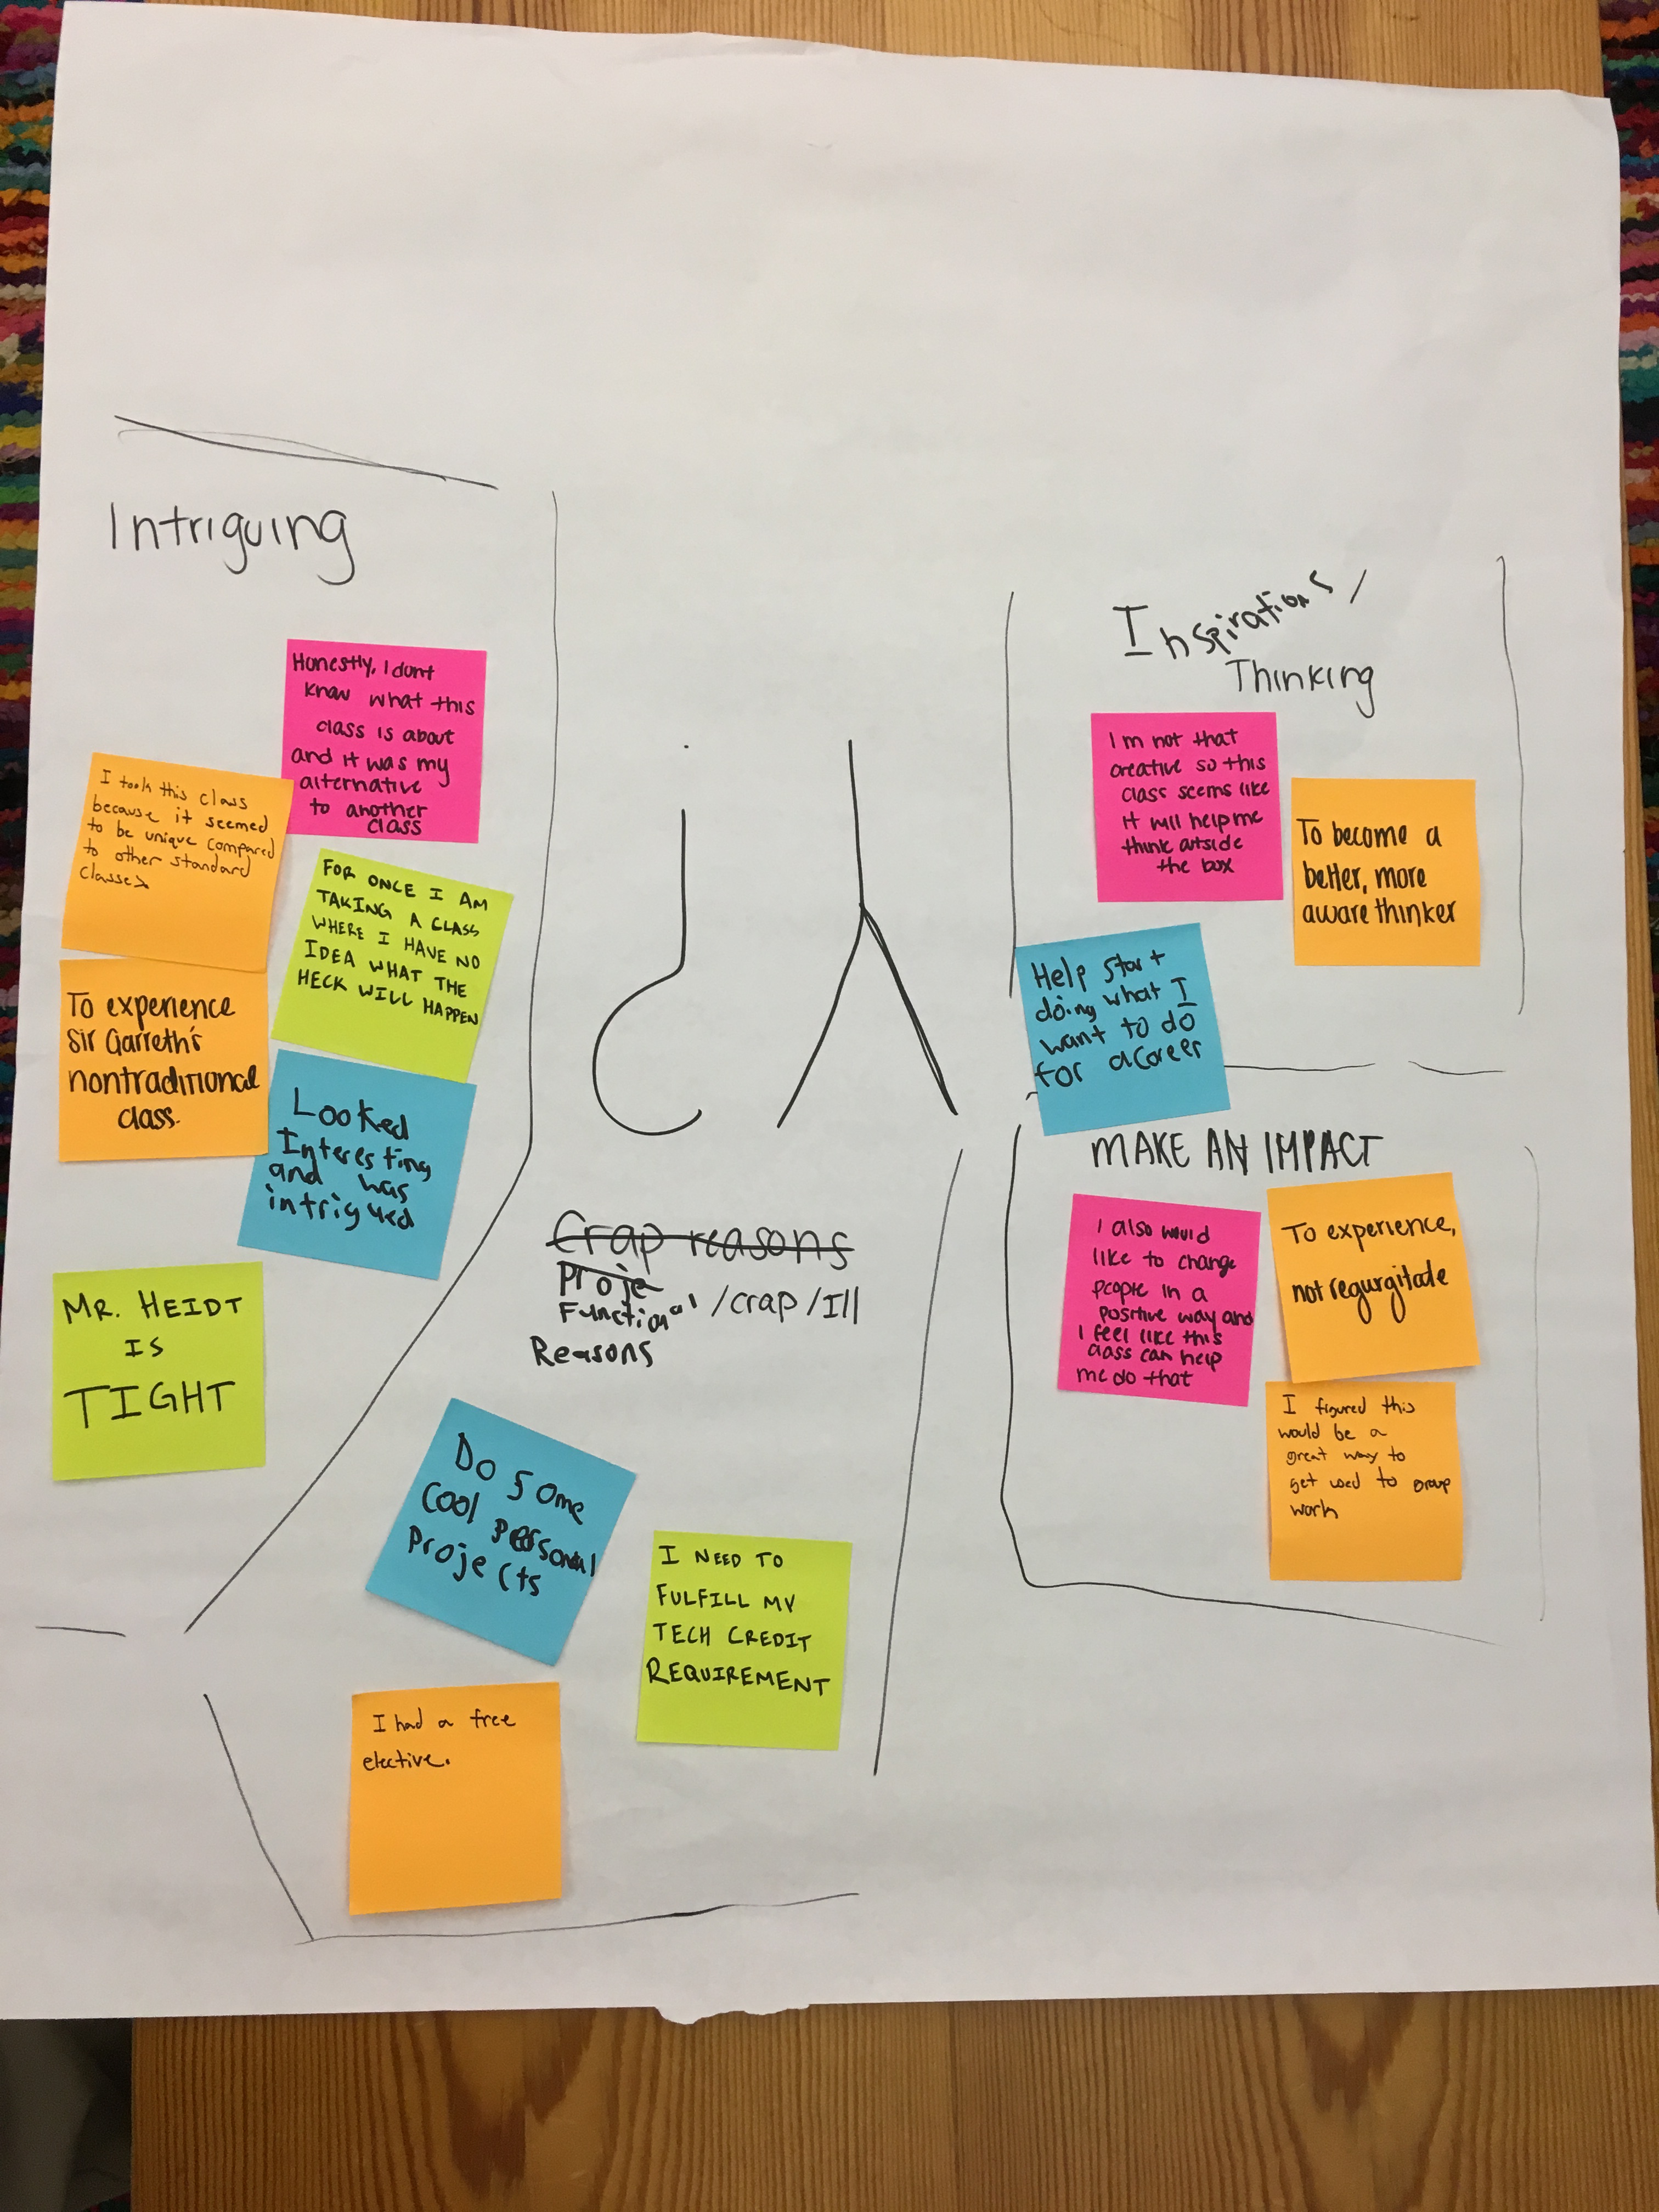 Intriguing
Honestly, I dont
know what this
class is about
and it was my
alternative
to another
class
I took this class
because it seemed
to be unique compared
to other standard
classes
FOR ONCE I AM
TAKING A CLASS
WHERE I HAVE NO
IDEA WHAT THE
HECK WILL HAPPEN
To experience
Sir Garreth's
nontraditional
class.
Looked
Interesting
and was
intrigued
MR. HEIDT
IS
TIGHT
Crap reasons
Proje
Functional /crap/Ill
Reasons
Do Some
Cool personal
Projects
I NEED TO
FULFILL MY
TECH CREDIT
REQUIREMENT
I had a free
elective.
Inspirations/
Thinking
Im not that
creative so this
class seems like
it will help me
think outside
the box
To become a
better, more
aware thinker
Help start
doing what I
want to do
for a Career
MAKE AN IMPACT
I also would
like to change
people in a
positive way and
I feel like this
class can help
me do that
To experience,
not regurgitate
I figured this
would be a
great way to
get used to group
work